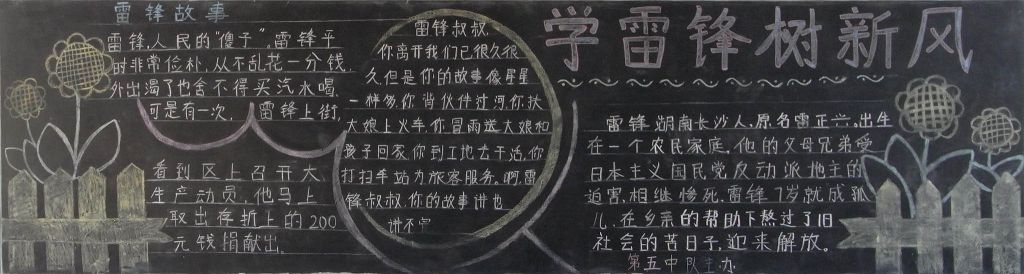 雷锋故事
雷锋,人民的“傻子”,雷锋平
时非常俭朴,从不乱花一分钱,
外出渴了也舍不得买汽水喝,
可是有一次,雷锋上街,
看到区上召开大
生产动员,他马上
取出存折上的200
元钱捐献出。
雷锋叔叔,
你离开我们已很久很
久但是你的故事像星星
一样多你背伙伴过河你扶
大娘上火车你冒雨送大娘和
孩子回家你到工地去干活,你
打扫车站为旅客服务。啊,雷
锋叔叔,你的故事讲也
讲不完
学雷锋树新风
雷锋,湖南长沙人,原名雷正兴。出生
在一个农民家庭,他的父母兄弟受
日本主义国民党反动派地主的
迫害,相继惨死,雷锋7岁就成孤
儿,在乡亲的帮助下熬过了旧
社会的苦日子,迎来解放。
第五中队主办